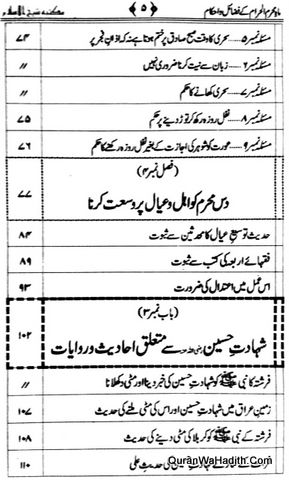 ماہِ محرم الحرام کے فضائل و احکام ﴿۵﴾ مکتبہ شیخ الاسلام
مسئلہ نمبر ۵..... سحری کا وقت صبح صادق پر ختم ہوتا ہے نہ کہ اذانِ فجر پر ۷۴
مسئلہ نمبر ۶..... زبان سے نیت کرنا ضروری نہیں ؍؍
مسئلہ نمبر ۷..... سحری کھانے کا حکم ؍؍
مسئلہ نمبر ۸..... نفل روزہ رکھ کر توڑ دینے پر حکم ۷۵
مسئلہ نمبر ۹..... عورت کو شوہر کی اجازت کے بغیر نفل روزہ رکھنے کا حکم ۷۶
(فصل نمبر ۴)
دس محرم کو اہل و عیال پر وسعت کرنا ۷۷
حدیث توسیعِ عیال کا محدثین سے ثبوت ۸۴
فقہائے اربعہ کی کتب سے ثبوت ۸۹
اس عمل میں اعتدال کی ضرورت ۹۳
(باب نمبر ۳)
شہادتِ حسین رضی اللہ عنہ سے متعلق احادیث و روایات ۱۰۲
فرشتہ کا نبی ﷺ کو شہادتِ حسین کی خبر دینا اور مٹی دکھلانا ؍؍
زمینِ عراق میں شہادتِ حسین اور اس کی مٹی ملنے کی حدیث ۱۰۷
فرشتہ کے نبی ﷺ کو کربلا کی مٹی دینے کی حدیث ۱۰۸
شہادتِ حسین کی حدیثِ علی ۱۱۰
QuranWaHadith.Com